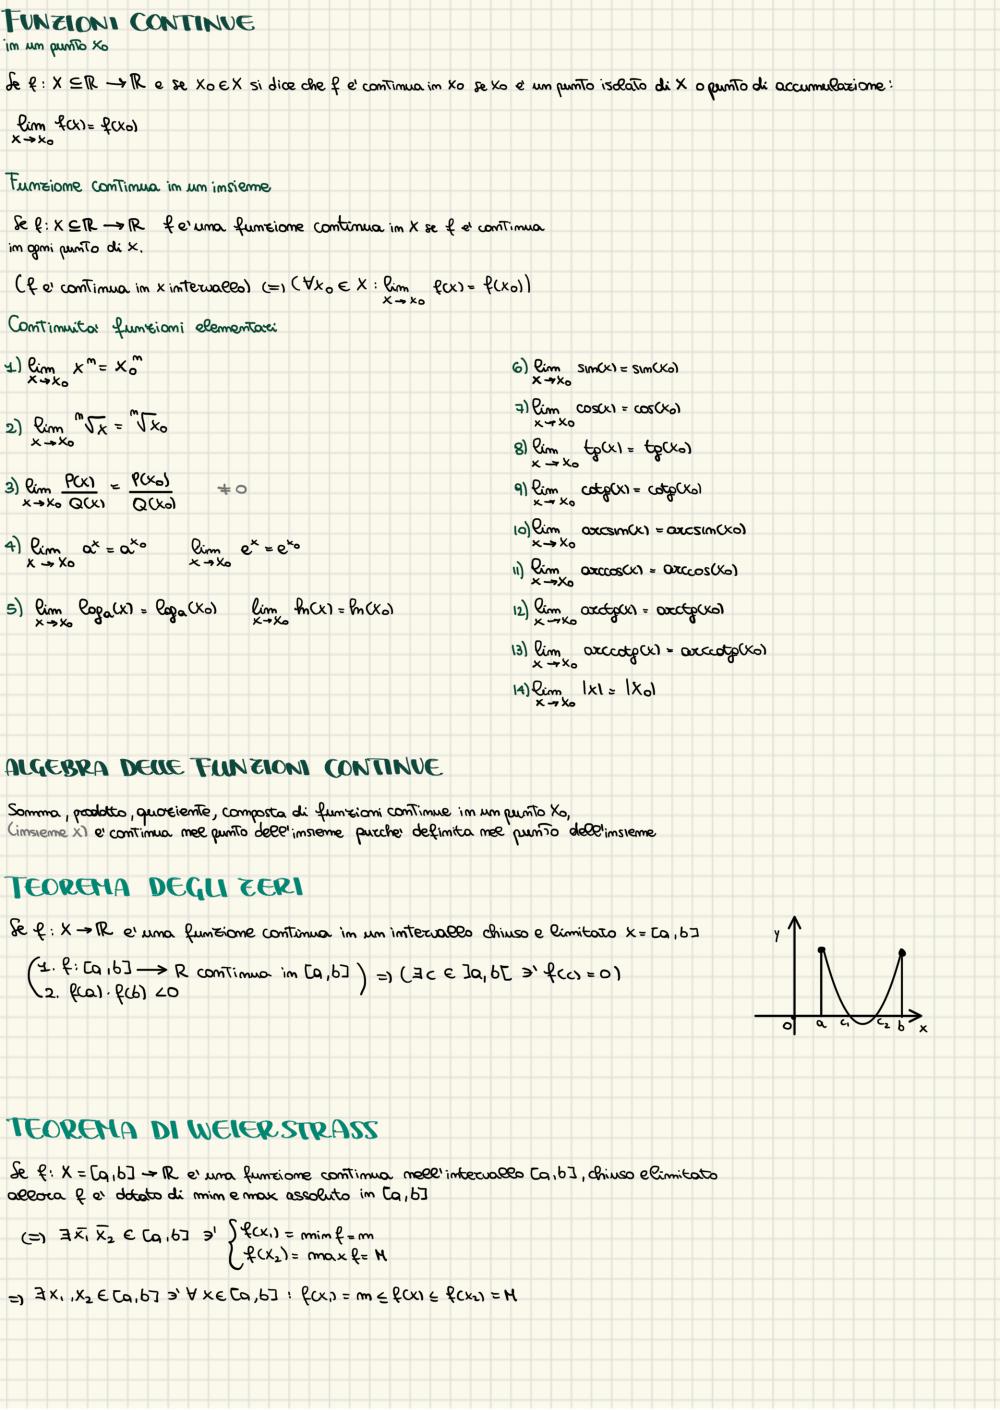 FUNZIONI CONTINUE
in un punto x₀
Se f: X ⊆ ℝ → ℝ e se x₀ ∈ X si dice che f e' continua in x₀ se x₀ e' un punto isolato di X o punto di accumulazione:
lim f(x) = f(x₀)
x→x₀
Funzione continua in un insieme
Se f: X ⊆ ℝ → ℝ f e' una funzione continua in X se f e' continua
in ogni punto di X.
(f e' continua in x intervallo) (=) (∀x₀ ∈ X : lim f(x) = f(x₀))
x→x₀
Continuita' funzioni elementari
1) lim xⁿ = x₀ⁿ
x→x₀
2) lim ⁿ√x = ⁿ√x₀
x→x₀
3) lim P(x)/Q(x) = P(x₀)/Q(x₀) ≠ 0
x→x₀
4) lim aˣ = aˣ⁰ lim eˣ = eˣ⁰
x→x₀ x→x₀
5) lim logₐ(x) = logₐ(x₀) lim ln(x) = ln(x₀)
x→x₀ x→x₀
6) lim sin(x) = sin(x₀)
x→x₀
7) lim cos(x) = cos(x₀)
x→x₀
8) lim tg(x) = tg(x₀)
x→x₀
9) lim cotg(x) = cotg(x₀)
x→x₀
10) lim arcsin(x) = arcsin(x₀)
x→x₀
11) lim arccos(x) = arccos(x₀)
x→x₀
12) lim arctg(x) = arctg(x₀)
x→x₀
13) lim arccotg(x) = arccotg(x₀)
x→x₀
14) lim |x| = |x₀|
x→x₀
ALGEBRA DELLE FUNZIONI CONTINUE
Somma, prodotto, quoziente, composta di funzioni continue in un punto x₀,
(insieme X) e' continua nel punto dell'insieme purche' definita nel punto dell'insieme
TEOREMA DEGLI ZERI
Se f: X → ℝ e' una funzione continua in un intervallo chiuso e limitato X = [a,b]
(1. f: [a,b] → R continua in [a,b]
2. f(a) · f(b) < 0) =) (∃c ∈ ]a,b[ ∋' f(c) = 0)
y
0 a c₁ c₂ b x
TEOREMA DI WEIERSTRASS
Se f: X = [a,b] → ℝ e' una funzione continua nell'intervallo [a,b], chiuso e limitato
allora f e' dotato di min e max assoluto in [a,b]
(=) ∃x̄₁ x̄₂ ∈ [a,b] ∋' { f(x₁) = min f = m
f(x₂) = max f = M
=) ∃x₁, x₂ ∈ [a,b] ∋' ∀ x ∈ [a,b] : f(x₁) = m ≤ f(x) ≤ f(x₂) = M